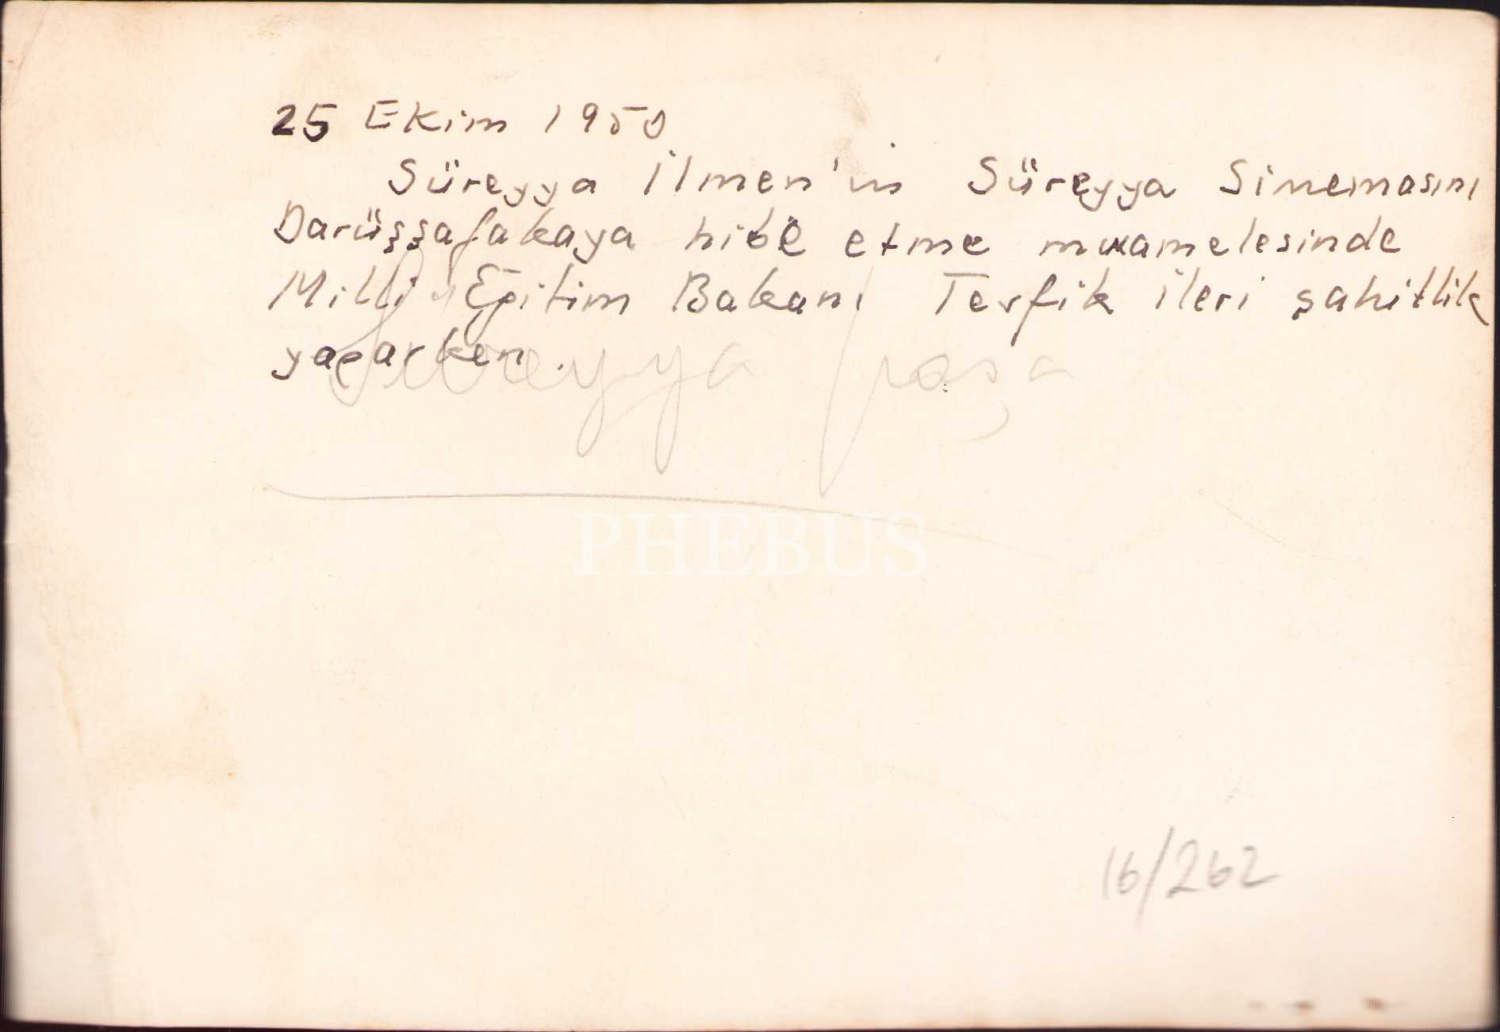 25 Ekim 1950
Süreyya İlmen'in Süreyya Sinemasını
Darüşşafakaya hibe etme muamelesinde
Milli Eğitim Bakanı Tevfik İleri şahitlik
yaparken.
Süreyya paşa
PHEBUS
16/262